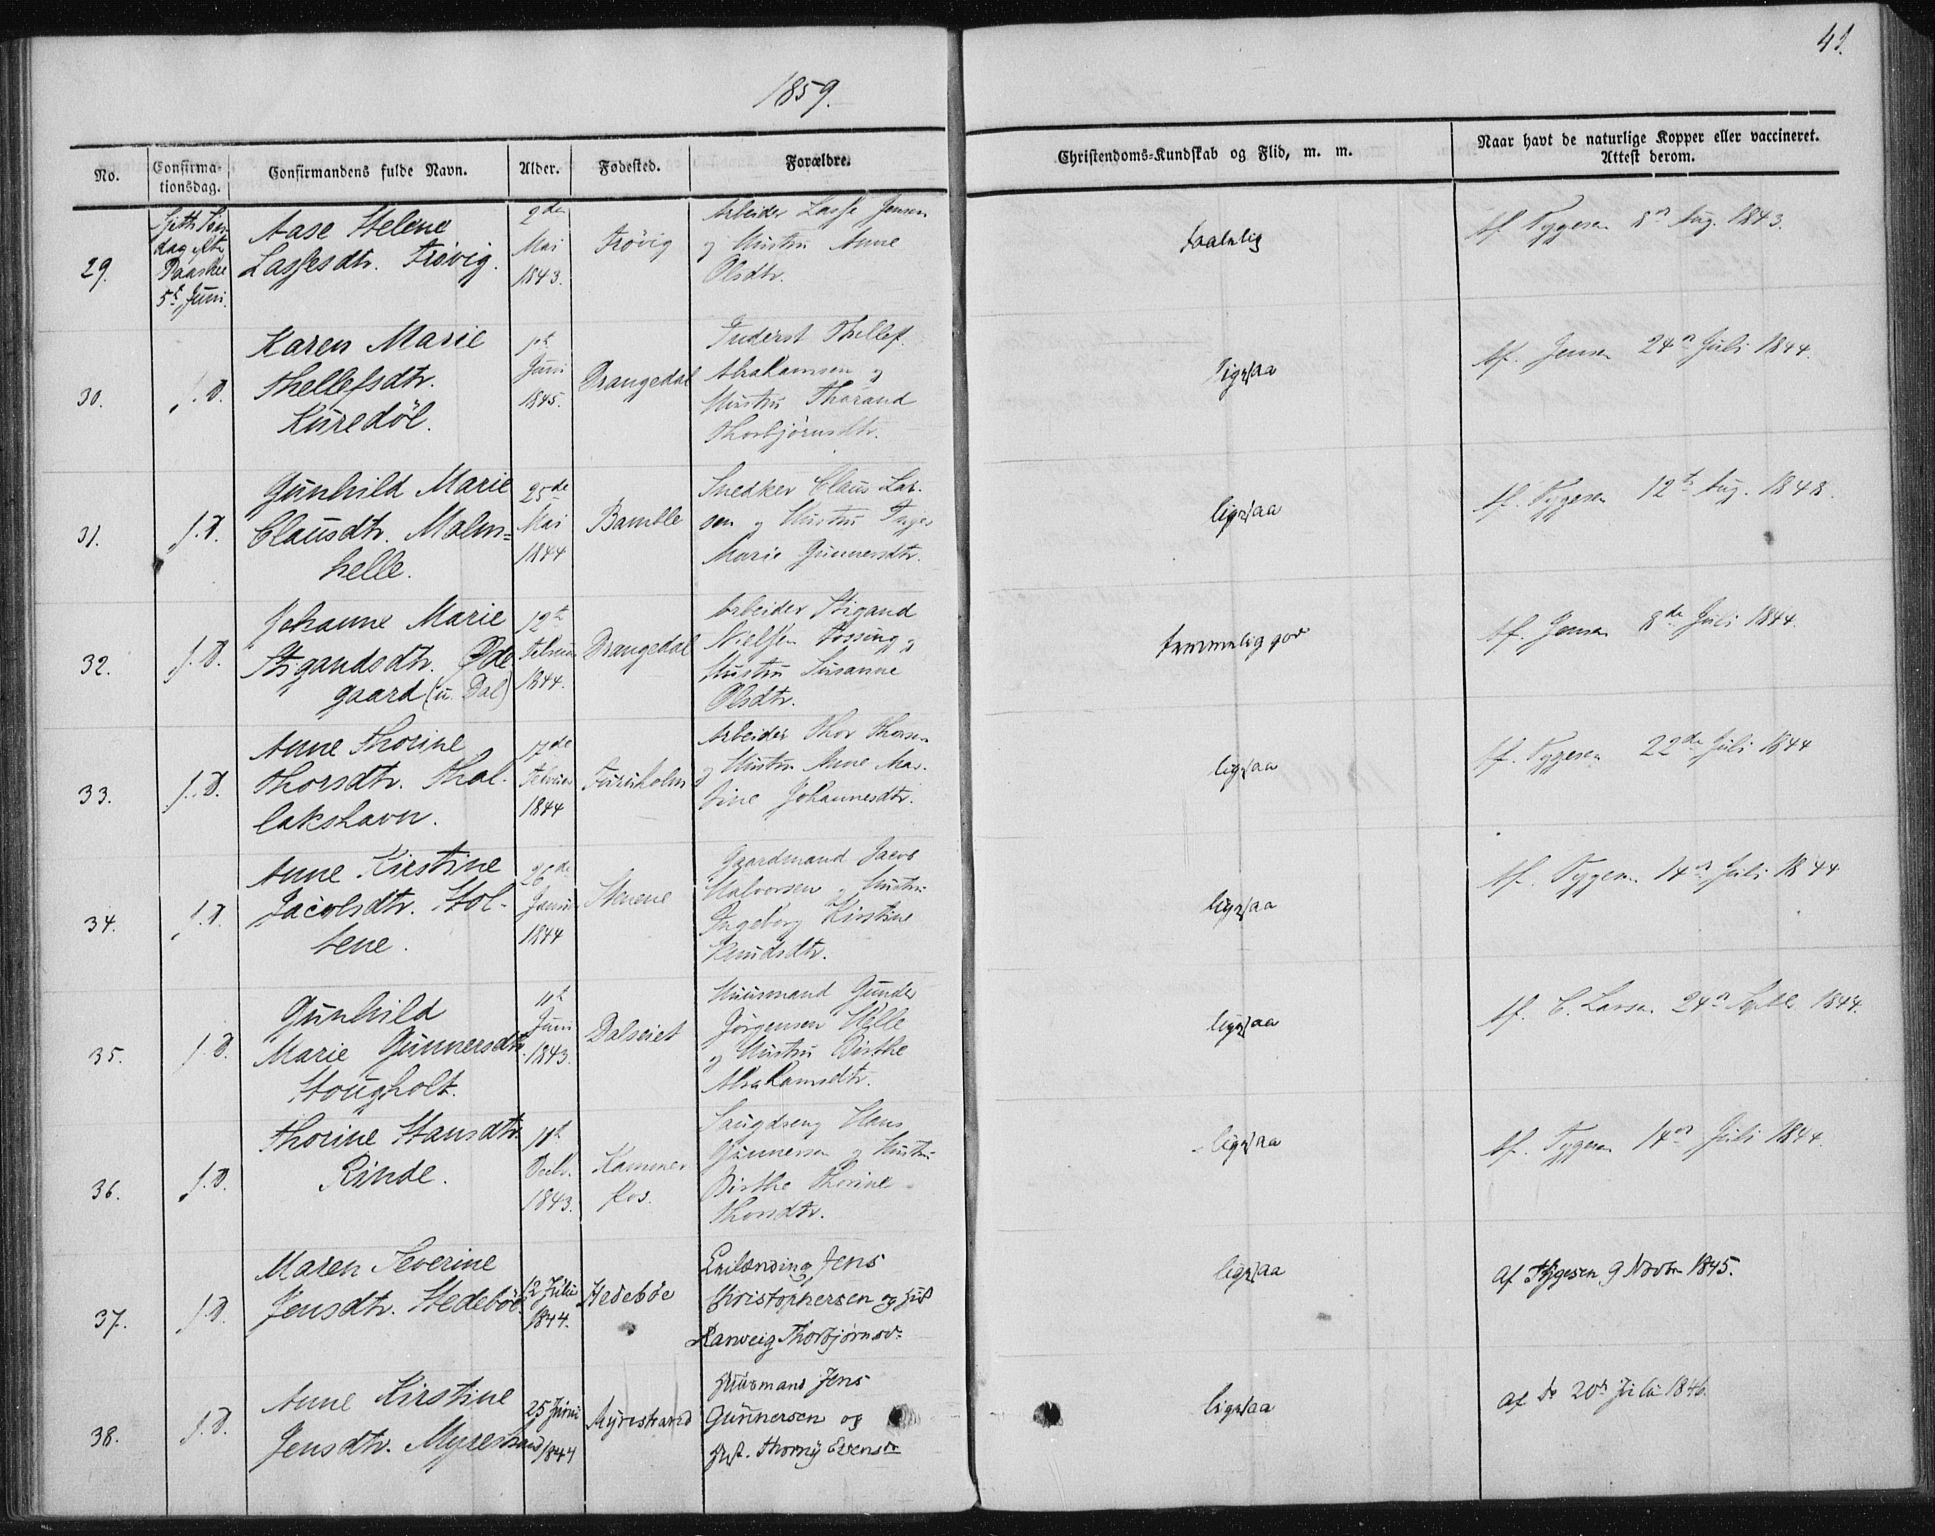 1859.
41.
No.
Confirma-
tionsdag.
Confirmandens fulde Navn.
Alder.
Fødested.
Forældre.
Christendoms-Kundskab og Flid, m. m.
Naar havt de naturlige Kopper eller vaccineret.
Attest derom.
29.
Paaske
5t Juni.
Aase Helene
Lassesdtr. Frøvig.
2den
Mai
1843.
Frøvig
Arbeider Lasse Jensen
og Hustru Anne
Olsdtr.
taalelig
Af Tygesen 8n Aug. 1843.
30.
f. D.
Karen Marie
Thellefsdtr.
Kuredøl.
1ste
Juni
1845.
Drangedal
Inderst Thellef
Abrahamsen og
Hustru Thorand
Thorbjørnsdtr.
ligesaa
Af. Jensen 24n Juli 1844.
31.
f. D.
Gunhild Marie
Clausdtr. Malm=
helle.
25de
Mai
1844
Bamble
Snedker Claus Lar-
sen og Hustru Inger
Marie Gunnersdtr.
ligesaa
Af. Tygesen 12t Aug. 1848.
32.
f. D.
Johanne Marie
Stigandsdtr. Øde
gaard (u. Dal)
12t
Februar
1844.
Drangedal
Arbeider Stigand
Nielsen Fossing og
Hustru Susanne
Olsdtr.
temmelig god
Af. Jensen 8de Juli 1844.
33.
f. D.
Anne Thorine
Thorsdtr. Thal-
lakshavn.
17de
Februar
1844
Furuholm
Arbeider Thor Thorsen
og Hustru Anne Mar-
tine Johannesdtr.
ligesaa
Af. Tygesen 22de Juli 1844
34.
f. D.
Anne Kirstine
Jacobsdtr. Stol-
tene.
26de
Januar
1844
Gaardmand Jacob
Halvorsen og Hustru
Ingeborg Kirstine
Knudsdtr.
ligesaa
Af. Tygesen 14n Juli 1844
35.
f. D.
Gunhild
Marie Gunnersdtr.
Hougholt.
Juni
1843.
Dalseiet
Huusmand Gunder
Jørgensen Helle
og Hustru Birthe
Abrahamsdtr.
ligesaa
Af. C. Larsen 24n Septbr 1844.
36.
f. D.
Thorine Hansdtr.
Rinde.
Decbr.
1843.
Kammer
fos.
Saugdreng Hans
Gunnersen og Hustru
Birthe Thorine
Thorsdtr.
ligesaa
Af. Tygesen 14n Juli 1844.
37.
f. D.
Maren Severine
Jensdtr. Hedebøe
12 Julii
1844.
Hedebøe
Jens
Christophersen og Hust
Ranveig Thorbjørnsd=
ligesaa
Af Thygesen 9 Novbr 1845.
38.
f. D.
Anne Kirstine
Jensdtr. Myrestrand
25 Junii
1844
Myrestrand
Huusmand Jens
Gunnersen og
Hust. Thorny Evensdr
ligesaa
Af Do 20de Julii 1846.